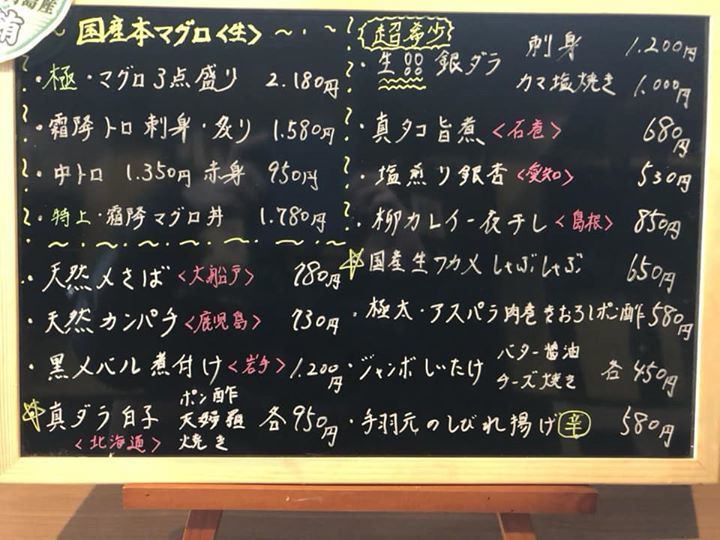 島産
国産本マグロ<生>
・極・マグロ3点盛り 2.180円
・霜降トロ刺身・炙り 1.580円
・中トロ 1.350円 赤身 950円
・特上・霜降マグロ丼 1.780円
・天然〆さば<大船戸> 780円
・天然カンパチ<鹿児島> 730円
・黒メバル煮付け<岩手> 1.200円
真ダラ白子 ポン酢 天婦羅 焼き 各950円
<北海道>
超希少
・生 銀ダラ 刺身 1.200円
カマ塩焼き 1.000円
・真タコ旨煮<石巻> 680円
・塩煎り銀杏<愛知> 530円
・柳カレイ一夜干し<島根> 850円
国産生ワカメしゃぶしゃぶ 650円
・極太・アスパラ肉巻きおろしポン酢 580円
・ジャンボしいたけ バター醤油 チーズ焼き 各450円
・手羽元のしびれ揚げ 辛 580円